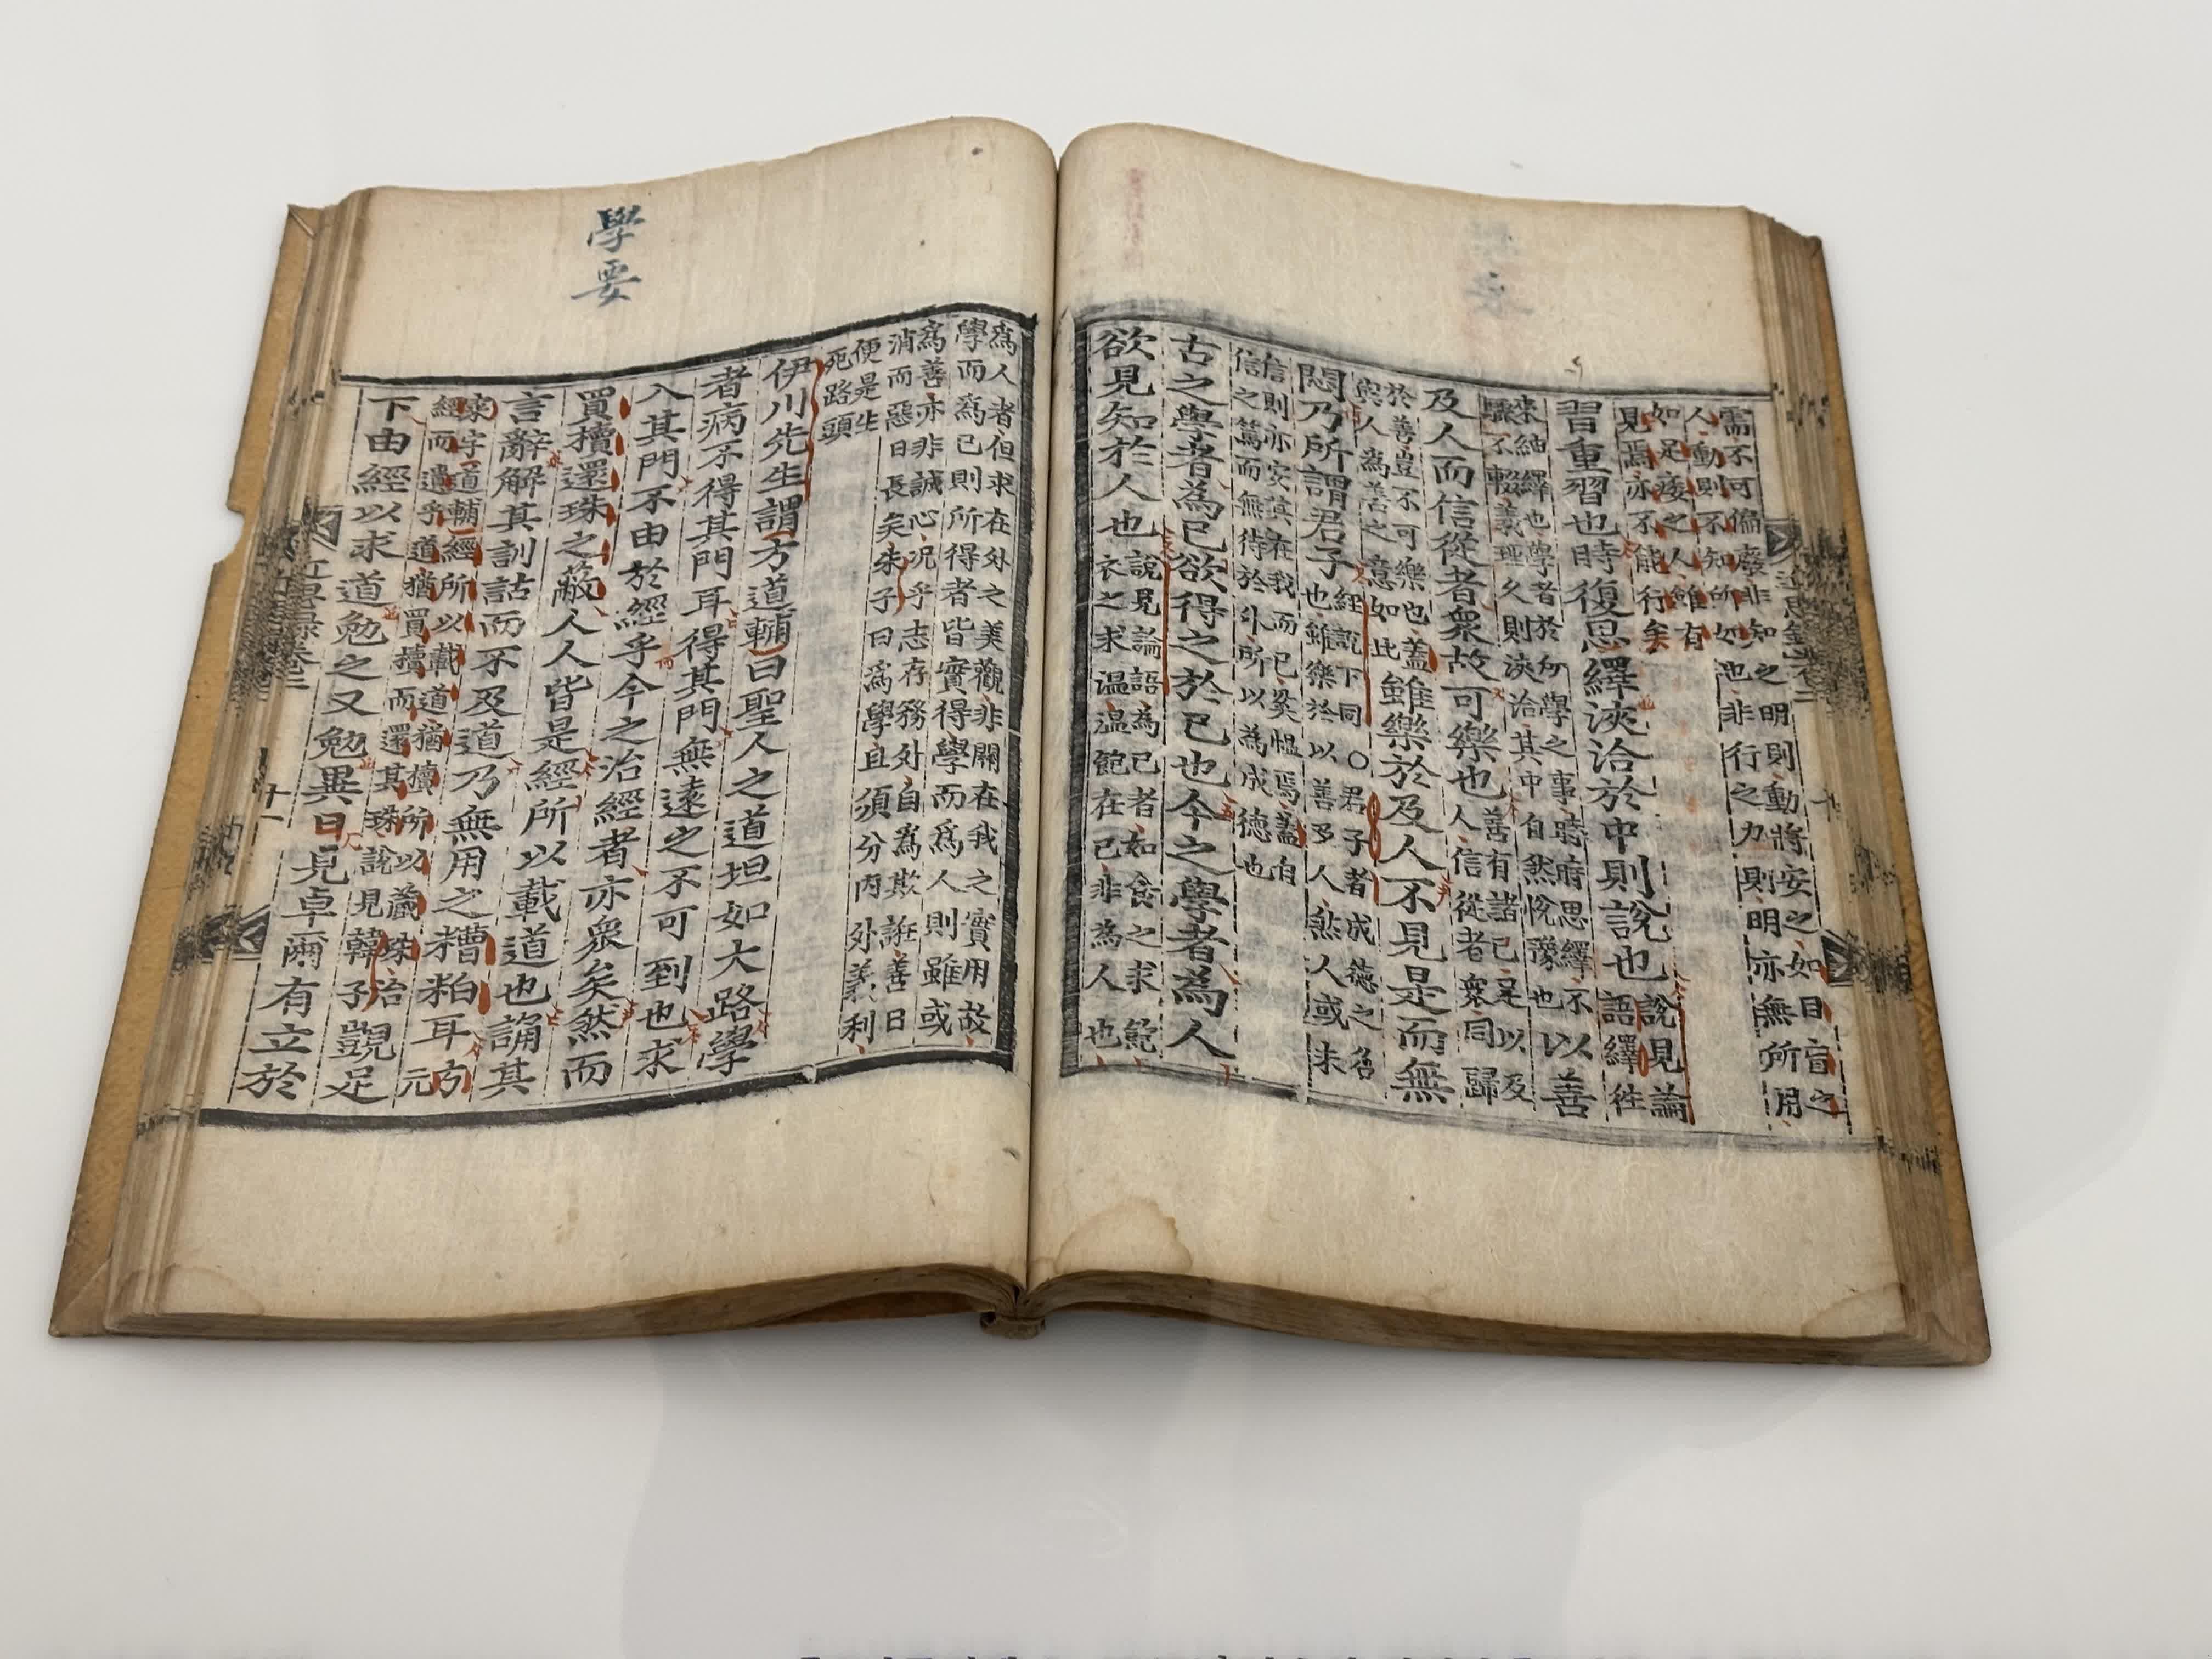 需不可偏廢非知之明則動將安之如目盲之
人動則不知所如也非行之力則明亦無所用
如足痿之人雖有
見焉亦不能行矣
習重習也時復思繹浹洽於中則說也說見論
語繹徃
來紬繹也學者於所學之事時時思繹不
驟不輟義理久則浹洽其中自然悅豫也以善
及人而信從者衆故可樂也善有諸己足以及
人信從者衆同歸
於善豈不可樂也盖
與人為善之意如此雖樂於及人不見是而無
悶乃所謂君子經說下同○君子者成德之名
也雖樂於以善及人然人或未
信則亦安其在我而已奚慍焉盖自
信之篤而無待於外所以為成德也
古之學者為己欲得之於己也今之學者為人
欲見知於人也說見論語為己者如食之求飽
衣之求溫溫飽在己非為人也
學要
為人者但求在外之美觀非關在我之實用故
學而為己則所得者皆實得學而為人則雖或
為善亦非誠心况乎志存務外自為欺誑善日
消而惡日長矣朱子曰為學且須分內外義利
便是生
死路頭
伊川先生謂方道輔曰聖人之道坦如大路學
者病不得其門耳得其門無遠之不可到也求
入其門不由於經乎今之治經者亦衆矣然而
買櫝還珠之蔽人人皆是經所以載道也誦其
言辭解其訓詁而不及道乃無用之糟粕耳方元
寀字道輔經所以載道猶櫝所以藏珠治
經而遺乎道猶買櫝而還其珠說見韓子覬足
下由經以求道勉之又勉異日見卓爾有立於
近思錄卷二
十一